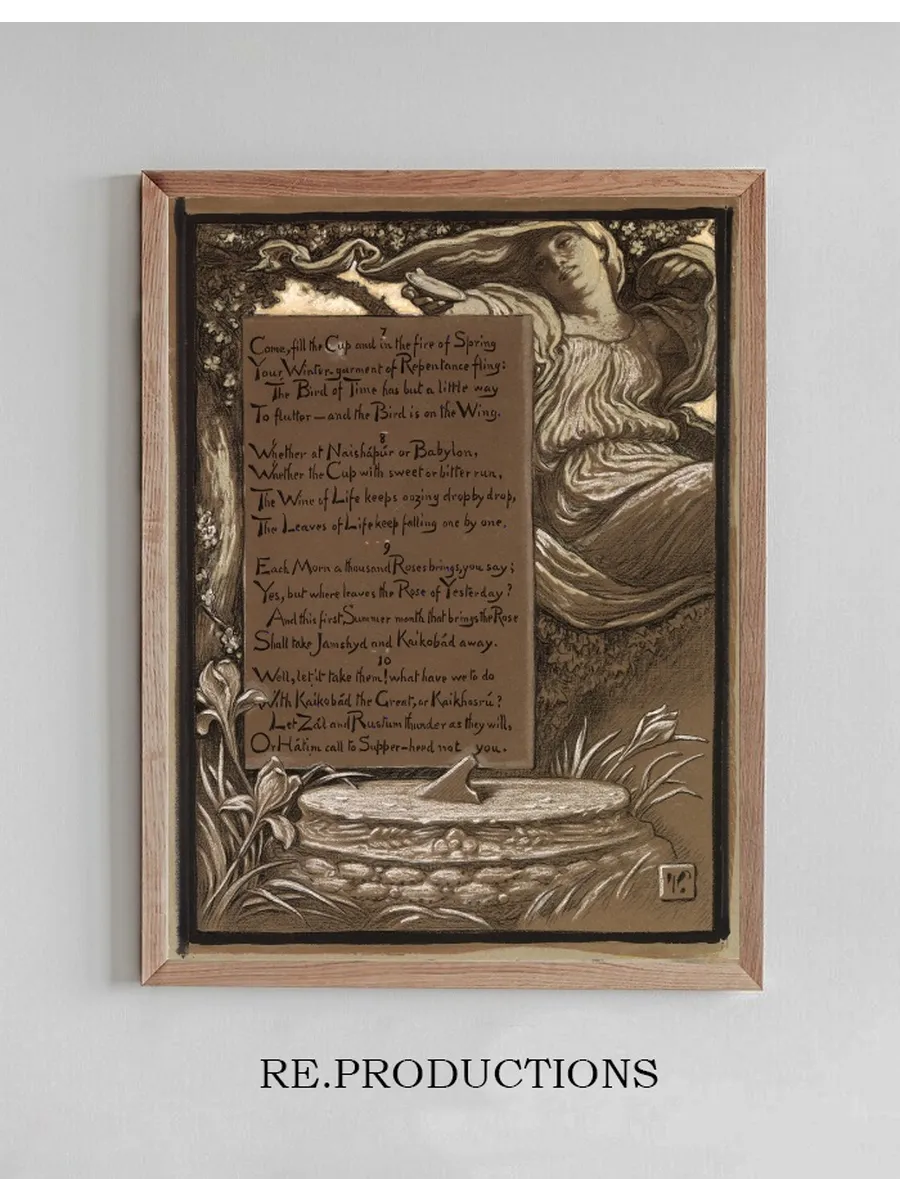 7
Come, fill the Cup and in the fire of Spring
Your Winter-garment of Repentance fling:
The Bird of Time has but a little way
To flutter — and the Bird is on the Wing.
8
Whether at Naishápúr or Babylon,
Whether the Cup with sweet or bitter run,
The Wine of Life keeps oozing drop by drop,
The Leaves of Life keep falling one by one.
9
Each Morn a thousand Roses brings, you say;
Yes, but where leaves the Rose of Yesterday?
And this first Summer month that brings the Rose
Shall take Jamshyd and Kaikobád away.
10
Well, let it take them! what have we to do
With Kaikobád the Great, or Kaikhosrú?
Let Zál and Rustum thunder as they will,
Or Hátim call to Supper-heed not you.
RE.PRODUCTIONS